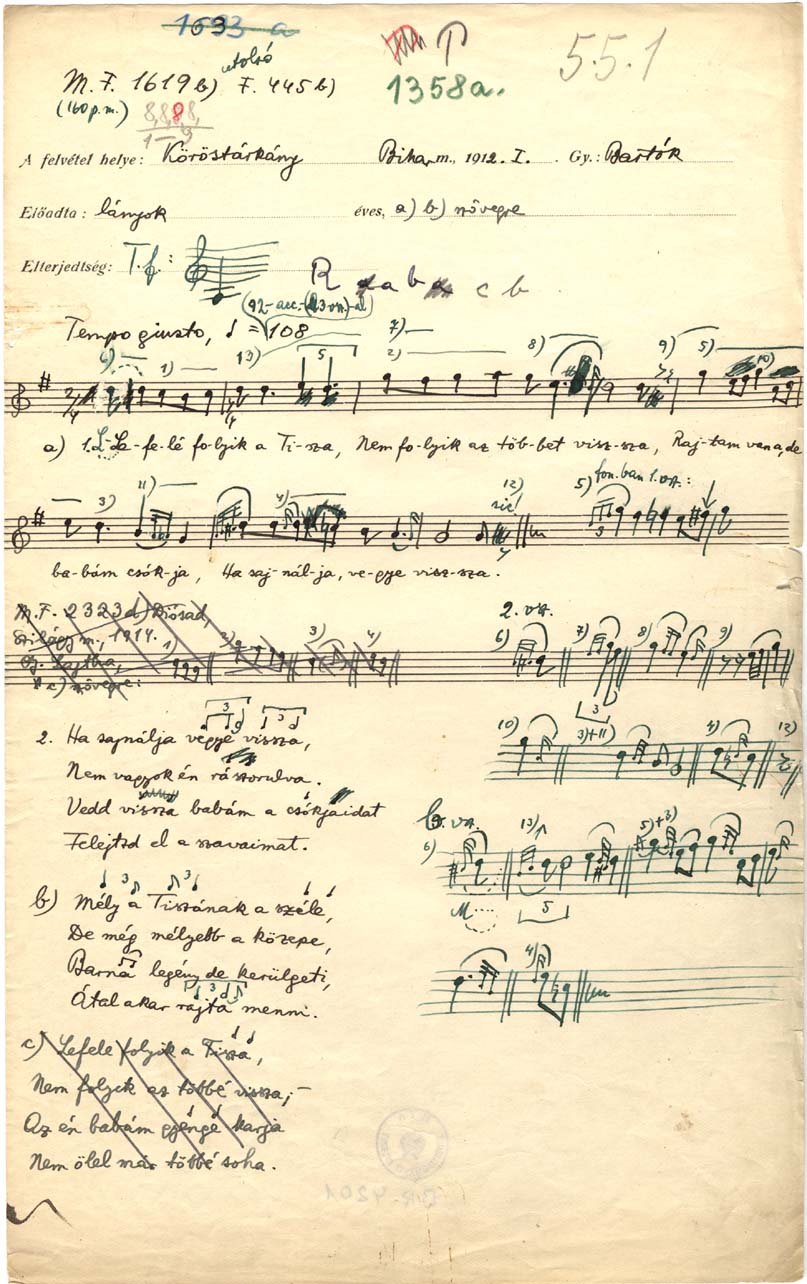 1633 a
M.F. 1619 b) utolsó F. 445 b)
(160 p.m.)
8, 8, 8, 8,
1358a.
5.5.1
A felvétel helye: Köröstárkány Bihar m., 1912. I. Gy.: Bartók
Előadta: lányok éves, a) b) szövegre
Elterjedtség: T.f.:
c b
Tempo giusto, ♩ = 108
1) 13) 5 7) 2) 8) 9) 5) 10)
a) 1. Le-fe-lé fo-lyik a Ti-sza, Nem fo-lyik az töb-bet visz-sza, Raj-tam van a, de
3) 11) 4) 12) sic! 5)
3
ba-bám csók-ja, Ha saj-nál-ja, ve-gye visz-sza.
M.F. 2323d) Diósad,
Szilágy m., 1914.
Gy. Lajtha,
c) szövegre:
1) 2) 3) 4)
2. va.
6) 7) 8) 9)
3
10) 3)+11) 4) 12)
2. Ha sajnálja vegye vissza,
Nem vagyok én rászorulva.
Vedd vissza babám a csókjaidat
Felejtsd el a szavaimat.
b. va.
6) 13) 5)+3)
5
4)
b) Mély a Tiszának a széle,
De még mélyebb a közepe,
Barna legény de kerülgeti,
Átal akar rajta menni.
c) Lefele folyik a Tisza,
Nem folyik az többé vissza;
Az én babám gyenge karja
Nem ölel már többé soha.